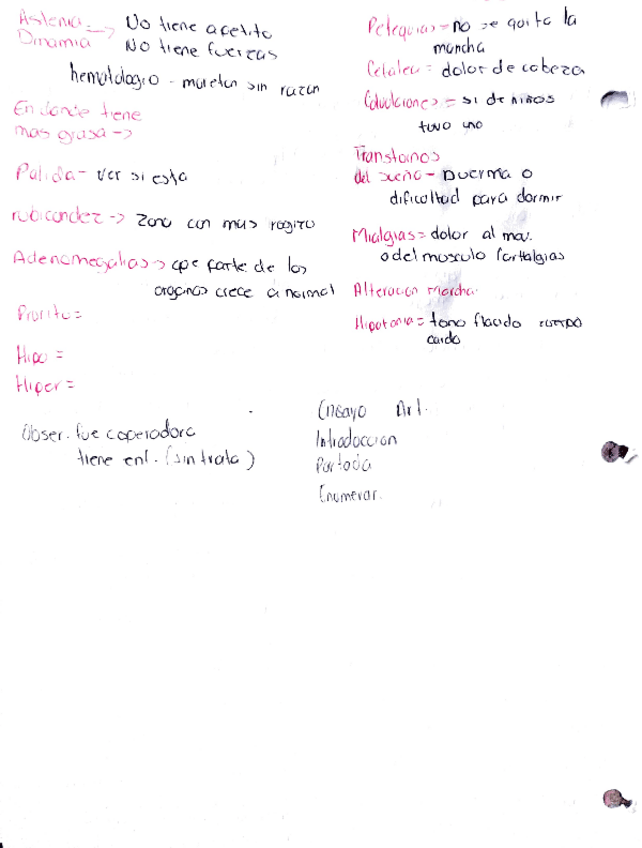 Astenia -> No tiene apetito
Dinamia No tiene fuerzas
hematologio - moreton sin razon
En donde tiene
mas grasa ->
Palida - ver si esta
rubicandez -> Zona con mas rogizo
Adenomegalias -> que parte de los
organos crece anormal
Prorito =
Hipo =
Hiper =
Obser. fue coperadora
tiene enf. (sin trata)
Petequias - no se quita la
mancha
Cefalea = dolor de cabeza
= si de niños
tuvo uno
Transtornos
del sueño - Duerma o
dificultad para dormir
Mialgias = dolor al mov.
o del musculo
Alteracion marcha
Hipotonia = tono flacido cuerpo
caido
Ensayo Art.
Introduccion
Portada
Enumerar.